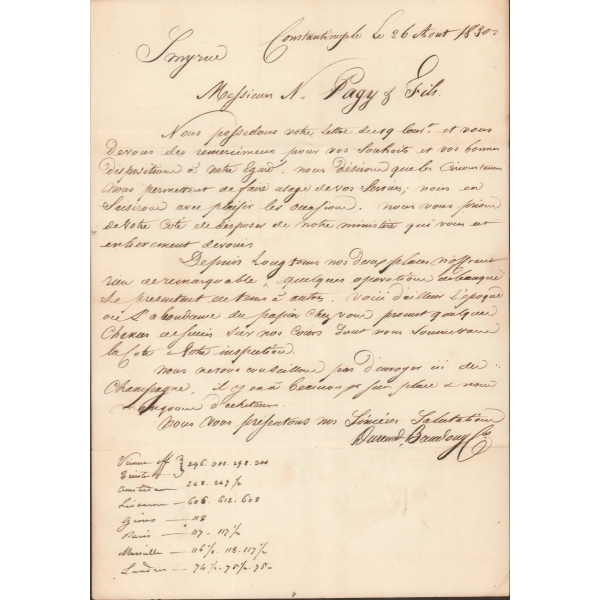 Constantinople Le 26 Aout 1830
Smyrne
Messieurs N. Pagy & Fils.
Nous possedons votre lettre du 19 Cour.t et vous
devons des remercimens pour vos souhaits et vos bonnes
dispositions à notre égard. nous désirons que les Circonstances
nous permettent de faire usage de vos Services; nous en
Saisirons avec plaisir les occasions. nous vous prions
de votre Coté de disposer de notre ministère qui vous est
entierement devoué
Depuis Longtems nos deux places n'offrent
rien de remarquable, quelques operations de banque
se presentent de tems à autre. voici d'ailleurs l'époque
où l'abondance du papier chez vous promet quelques
Chances de sur nos Cours dont vous Soumettrons
la Cote à votre inspection.
nous ne vous conseillons pas d'envoyer ici de
Champagne, il y en a beaucoup sur place & nous
d'acheteurs
Nous vous présentons nos Sincères Salutations
Durand, Baudouy
Vienne eff } 296. 300. 298. 300
Trieste
Amsterdam — 248. 247 ½
Livourne — 606. 612. 608
Gènes — 118
Paris — 117 - 117 ½
Marseille — 116 ½. 118. 117 ½
Londres — 74 ½. 75 ½. 75